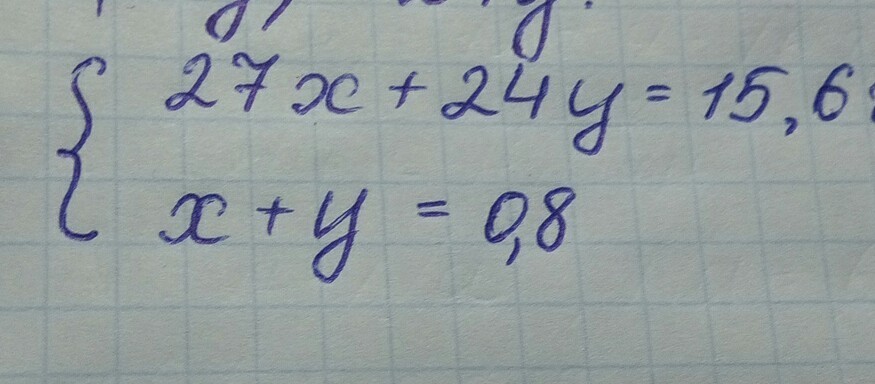 27x + 24y = 15,6
x + y = 0,8